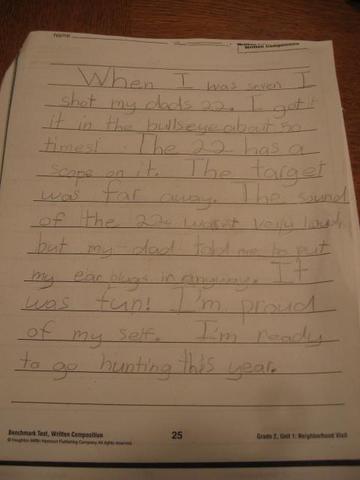 Name
Written Composition
When I was seven I
shot my dads 22. I got it
it in the bullseye about 50
times! The 22 has a
scope on it. The target
was far away. The sound
of the 22 wasnt very loud,
but my dad told me to put
my ear plugs in anyway. It
was fun! I'm proud
of my self. I'm ready
to go hunting this year.
Benchmark Test, Written Composition
© Houghton Mifflin Harcourt Publishing Company. All rights reserved.
25
Grade 2, Unit 1: Neighborhood Visit